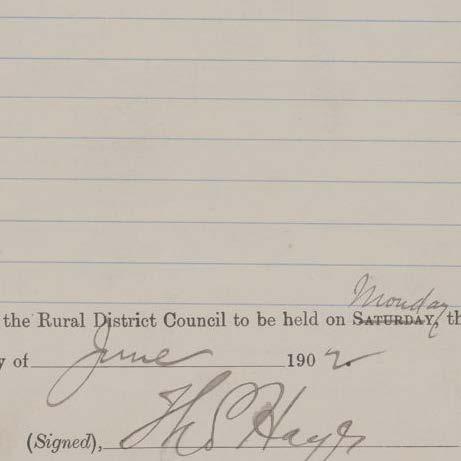 Monday
the Rural District Council to be held on SATURDAY, th
y of June 1902
(Signed), Thos Hayes